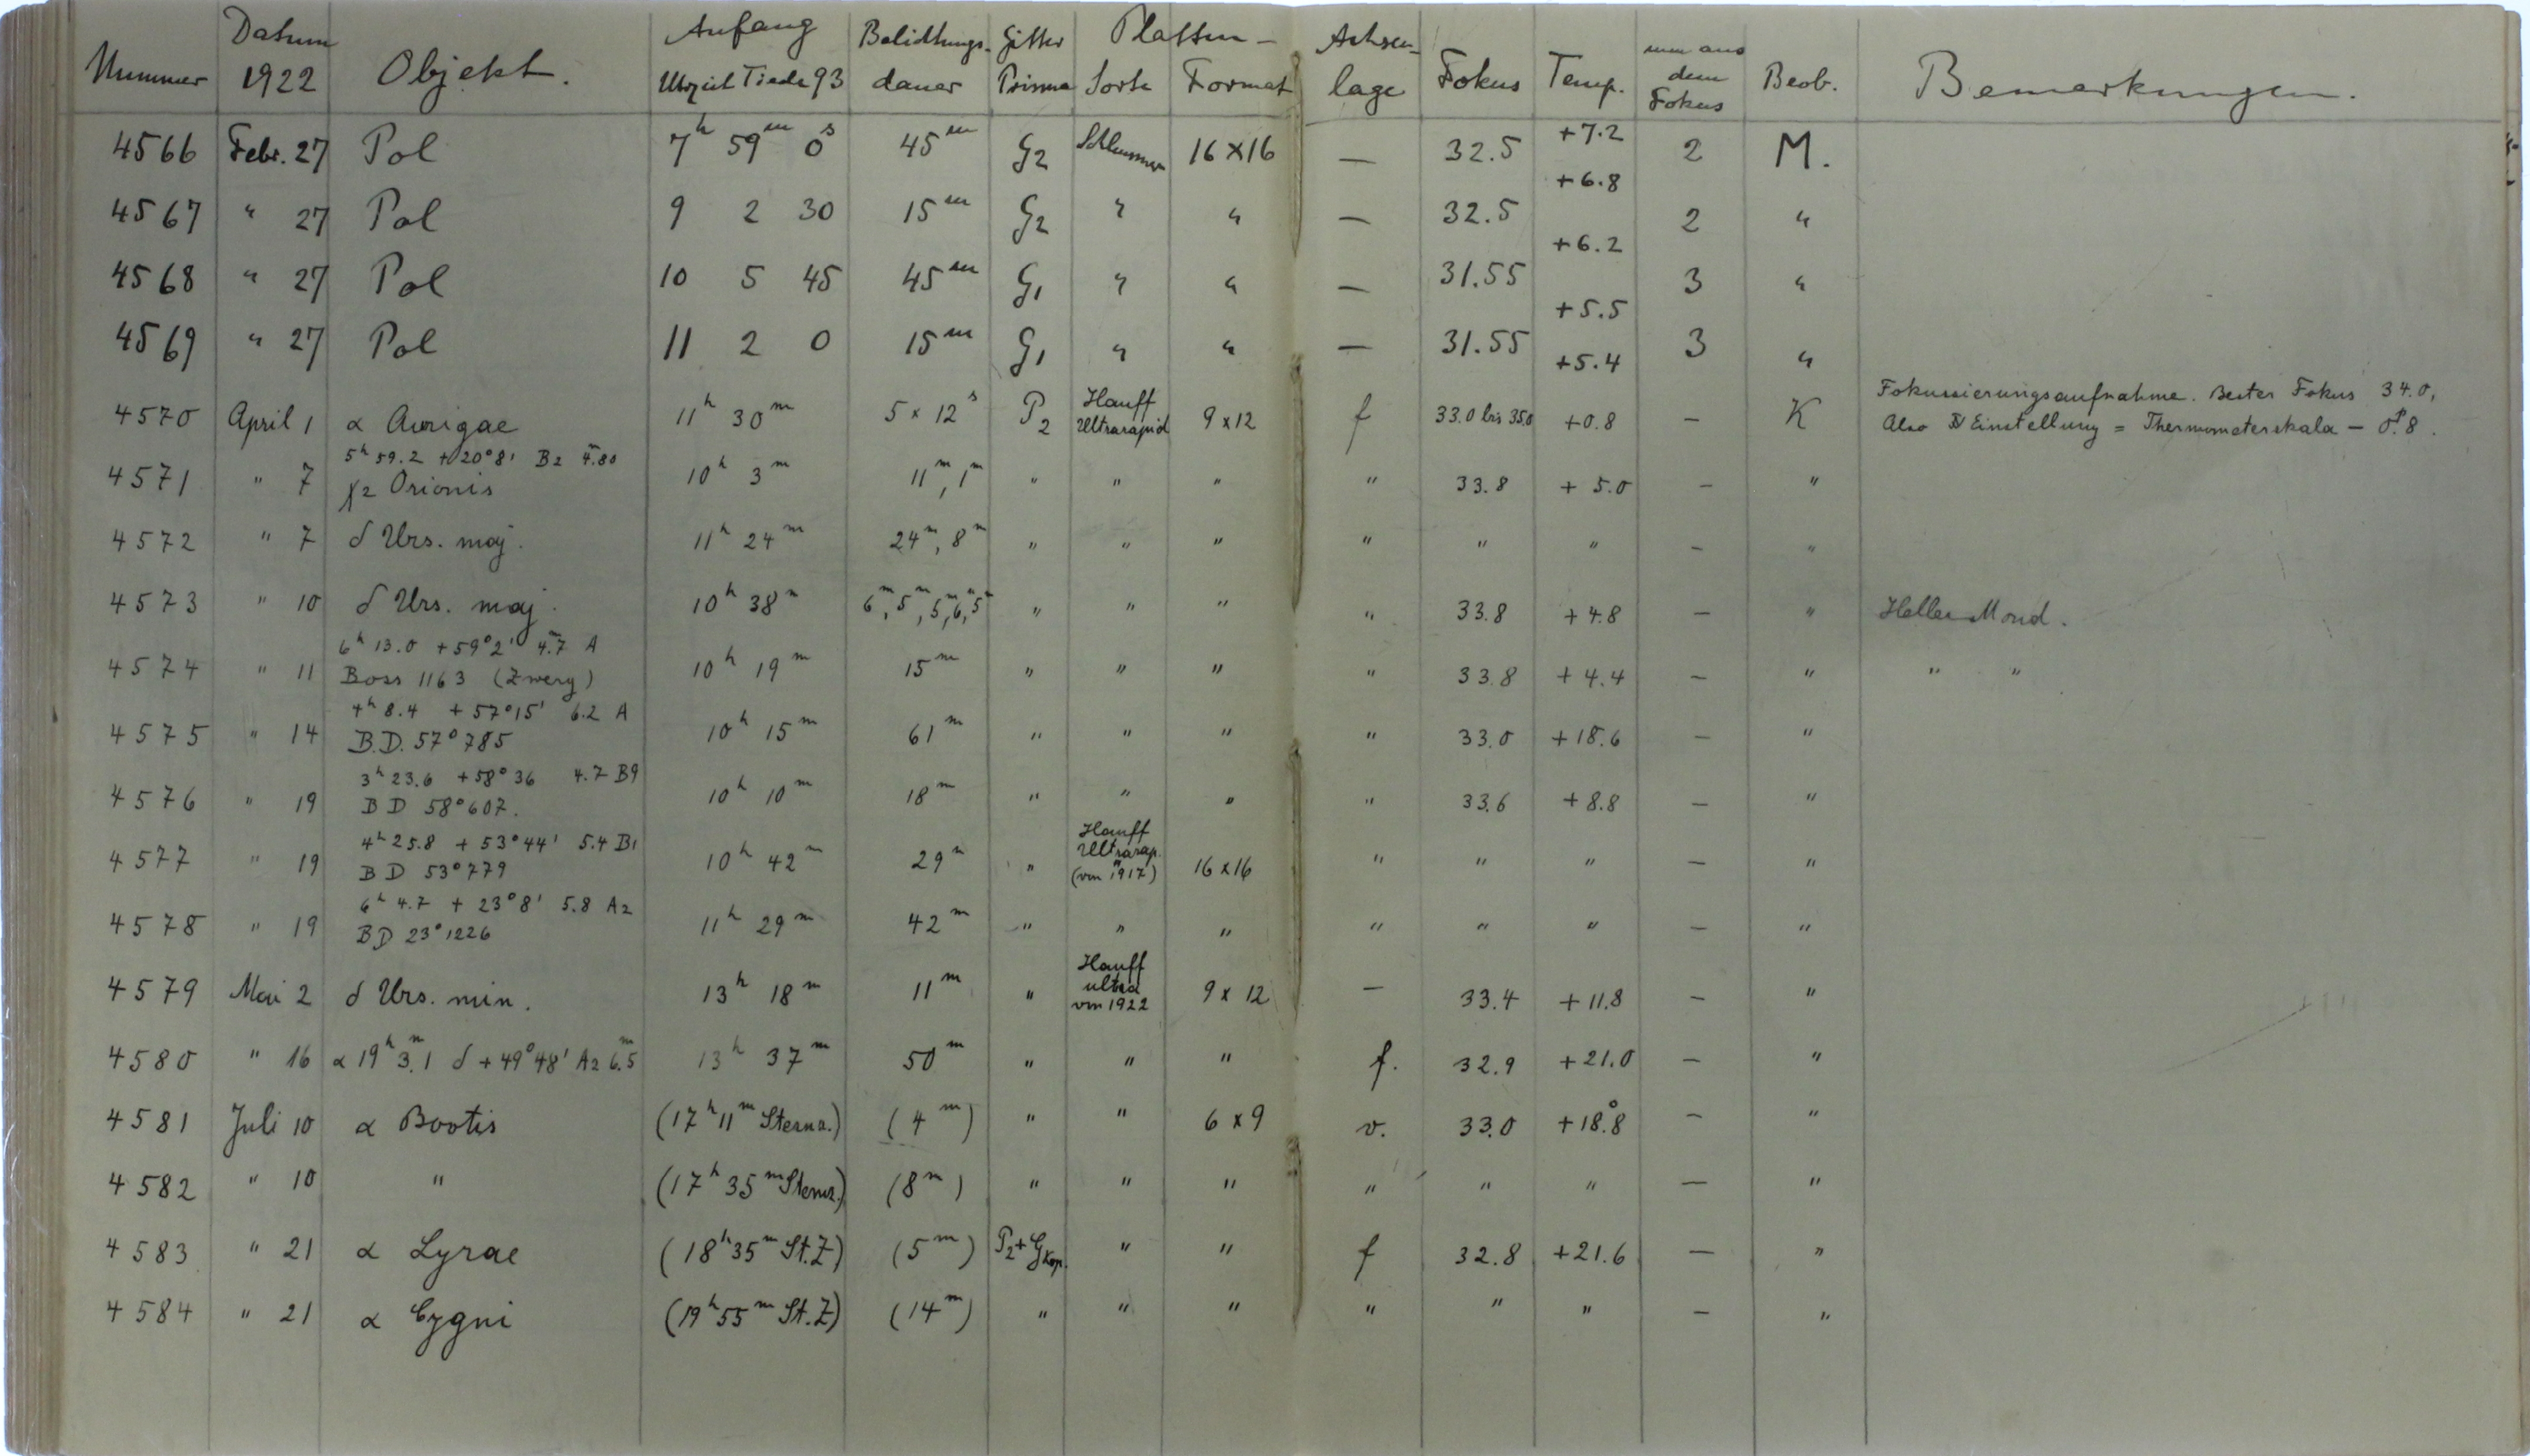 Nummer Datum 1922 Objekt. Anfang Uhrzeit Tiede 93 Belichtungs-dauer Gitter Prisma Platten- Sorte Format Achsen-lage Fokus Temp. mm aus dem Fokus Beob. Bemerkungen.
4566 Febr. 27 Pol 7h 59m 0s 45m G2 Schleussner 16 x 16 — 32.5 +7.2 2 M.
+6.8
4567 " 27 Pol 9 2 30 15m G2 " " — 32.5 2 "
+6.2
4568 " 27 Pol 10 5 45 45m G1 " " — 31.55 3 "
+5.5
4569 " 27 Pol 11 2 0 15m G1 " " — 31.55 3 "
+5.4
4570 April 1 α Aurigae 11h 30m 5 x 12s P2 Hauff Ultrarapid 9 x 12 f 33.0 bis 35.0 +0.8 — K Fokussierungsaufnahme. Bester Fokus 34.0,
Also Einstellung = Thermometerskala — 0p.8.
5h 59.2 +20°8' B2 4m.80
4571 " 7 χ2 Orionis 10h 3m 11m, 1m " " " " 33.8 + 5.0 — "
4572 " 7 δ Urs. maj. 11h 24m 24m, 8m " " " " " " — "
4573 " 10 δ Urs. maj. 10h 38m 6m, 5m, 5m, 6m, 5m " " " " 33.8 + 4.8 — " Heller Mond.
6h 13.0 +59°2' 4m.7 A
4574 " 11 Boss 1163 (Zwerg) 10h 19m 15m " " " " 33.8 + 4.4 — " " "
4h 8.4 +57°15' 6.2 A
4575 " 14 B.D. 57°785 10h 15m 61m " " " " 33.0 +18.6 — "
3h 23.6 +58°36 4.7 B9
4576 " 19 BD 58°607. 10h 10m 18m " " " " 33.6 +8.8 — "
4h 25.8 + 53°44' 5.4 B1
4577 " 19 BD 53°779 10h 42m 29m " Hauff Ultrarap. (von 1917) 16 x 16 " " " — "
6h 4.7 + 23°8' 5.8 A2
4578 " 19 BD 23°1226 11h 29m 42m " " " " " " — "
4579 Mai 2 δ Urs. min. 13h 18m 11m " Hauff ultra von 1922 9 x 12 — 33.4 +11.8 — "
4580 " 16 α 19h 3m.1 δ +49°48' A2 6m.5 13h 37m 50m " " " f. 32.9 +21.0 — "
4581 Juli 10 α Bootis (17h 11m Sternz.) (4m) " " 6 x 9 v. 33.0 +18°.8 — "
4582 " 10 " (17h 35m Sternz.) (8m) " " " " " " — "
4583 " 21 α Lyrae (18h 35m St.Z) (5m) P2+GKop. " " f 32.8 +21.6 — "
4584 " 21 α Cygni (19h 55m St.Z) (14m) " " " " " " — "